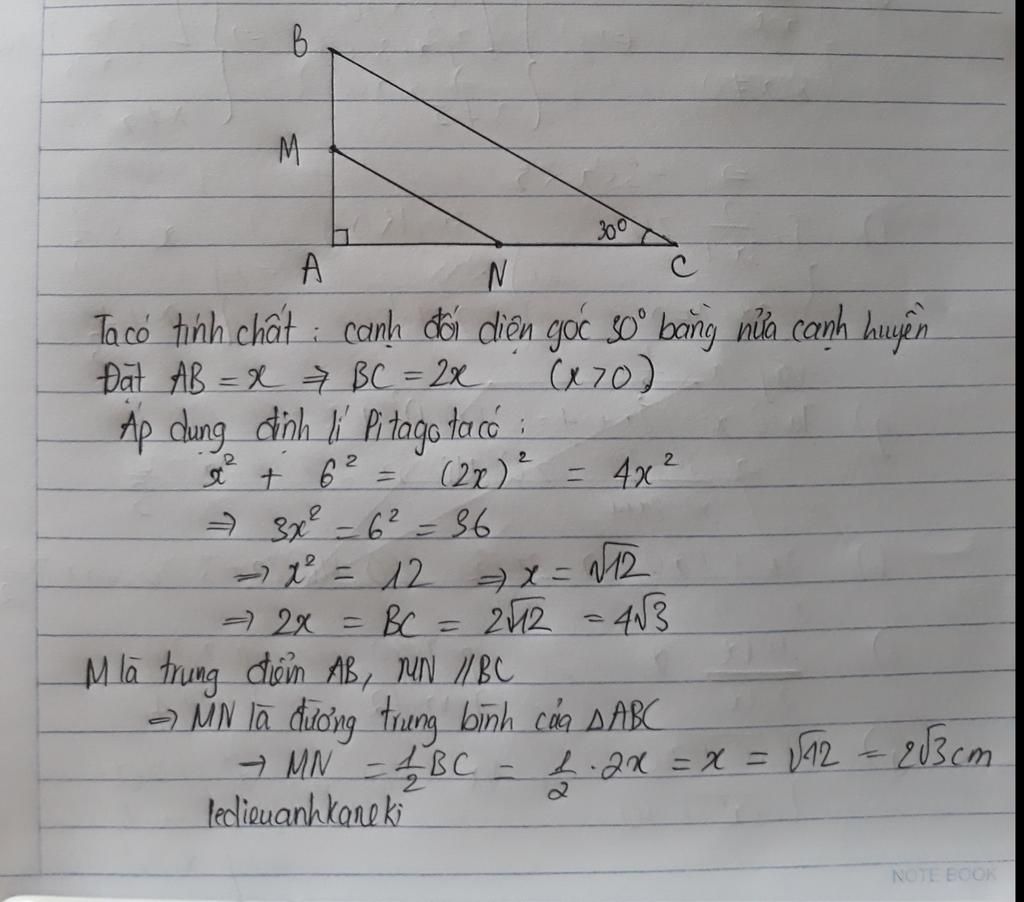 B
M
30°
A
N
C
Ta có tính chất : cạnh đối diện góc 30° bằng nửa cạnh huyền
Đặt AB = x ⇒ BC = 2x (x > 0)
Áp dụng định lí Pitago ta có :
x² + 6² = (2x)² = 4x²
⇒ 3x² = 6² = 36
⇒ x² = 12 ⇒ x = √12
⇒ 2x = BC = 2√12 = 4√3
M là trung điểm AB, MN // BC
⇒ MN là đường trung bình của ΔABC
→ MN = 1/2 BC = 1/2 . 2x = x = √12 = 2√3 cm
ledieuanhkaneki
NOTE BOOK